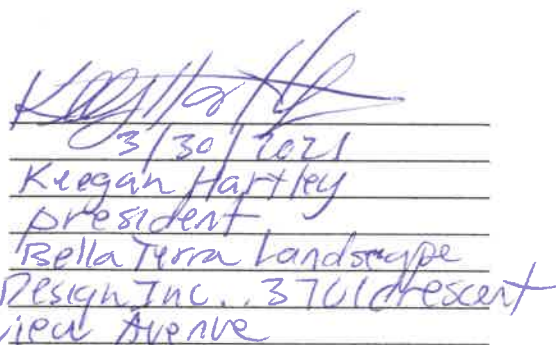 3/30/2021
Keegan Hartley
president
Bella Terra Landscape
Design Inc.. 3701 crescent
view Avenue